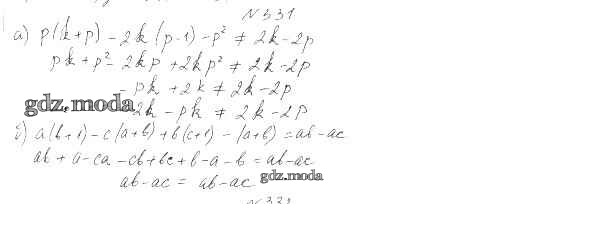 N 331
а) p(k+p) - 2k(p-1) - p² ≠ 2k-2p
pk + p² - 2kp + 2kp² ≠ 2k-2p
- pk + 2k ≠ 2k-2p
2k - pk ≠ 2k-2p
gdz.moda
б) a(b+1) - c(a+b) + b(c+1) - (a+b) = ab-ac
ab + a - ca - cb + bc + b - a - b = ab-ac
ab-ac = ab-ac
gdz.moda